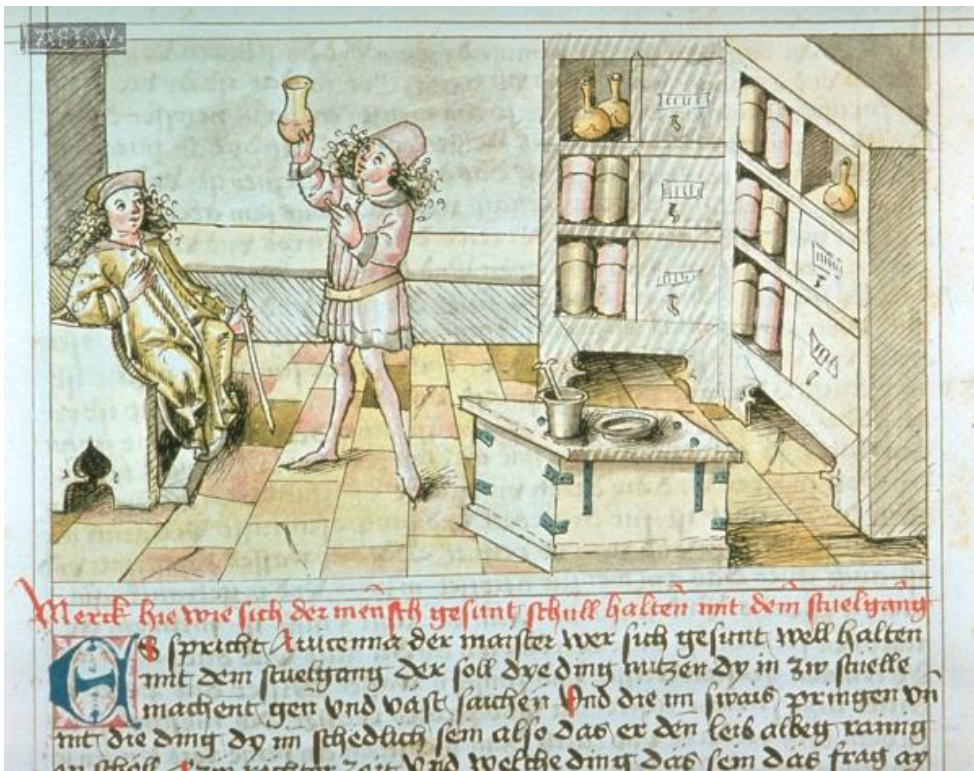 Merck hie wie sich der mensch gesunt schull halten mit dem stuelgang
Es spricht Auicenna der maister wer sich gesunt well halten
mit dem stuelgang der soll dye ding nutzen dy in zw stuelle
machent gen vnd vast saichen Vnd die im swais pringen vn
mit die ding dy im schedlich sein also das er den leib albeg rainig
en scholl zw rechter zeit Vnd welche ding das sein das frag ay